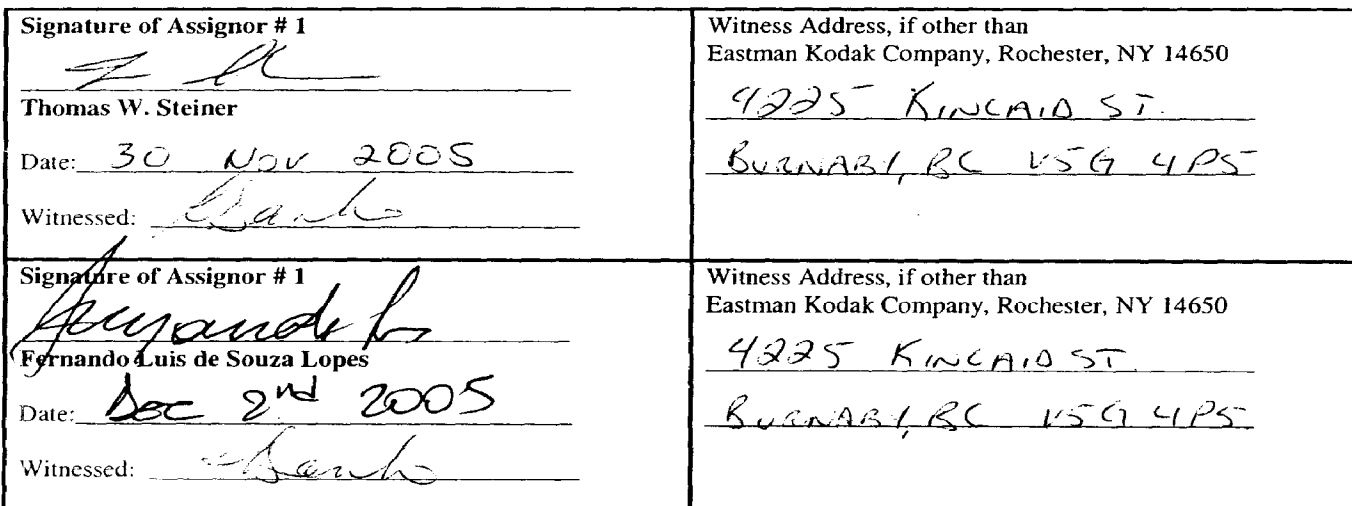 Signature of Assignor # 1
Thomas W. Steiner
Date: 30 Nov 2005
Witnessed:
Witness Address, if other than
Eastman Kodak Company, Rochester, NY 14650
4225 KINCAID ST.
BURNABY, BC V5G 4P5
Signature of Assignor # 1
Fernando Luis de Souza Lopes
Date: Dec 2nd 2005
Witnessed:
Witness Address, if other than
Eastman Kodak Company, Rochester, NY 14650
4225 KINCAID ST
BURNABY, BC V5G 4P5